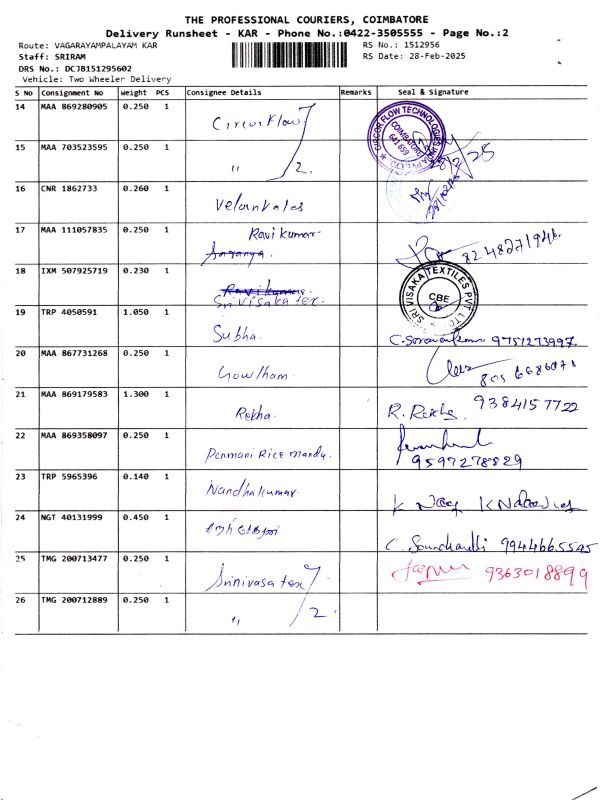 THE PROFESSIONAL COURIERS, COIMBATORE
Delivery Runsheet - KAR - Phone No.:0422-3505555 - Page No.:2
Route: VAGARAYAMPALAYAM KAR RS No.: 1512956
Staff: SRIRAM RS Date: 28-Feb-2025
DRS No.: DCJB151295602
Vehicle: Two Wheeler Delivery
S No Consignment No Weight PCS Consignee Details Remarks Seal & Signature
14 MAA 869280905 0.250 1 Circor Flow
CIRCOR FLOW TECHNOLOGIES INDIA PVT. LTD. COIMBATORE 641 659
28/2/25
15 MAA 703523595 0.250 1 " 2.
16 CNR 1862733 0.260 1 Velankates
28/02/25
17 MAA 111057835 0.250 1 Ravi kumar
Saranya. 8248271946
18 IXM 507925719 0.230 1 Ravikumar
Sri visaka tex.
SRI VISAKA TEXTILES PVT LTD CBE
19 TRP 4050591 1.050 1 Subha. 9751273997
20 MAA 867731268 0.250 1 Gowtham
21 MAA 869179583 1.300 1 Rekha. R. Rekha 9384157722
22 MAA 869358097 0.250 1 Ponmani Rice mandy. 9597278829
23 TRP 5965396 0.140 1 Nandhakumar
24 NGT 40131999 0.450 1 C. Soundhardhi 9944665545
25 TMG 200713477 0.250 1 Srinivasa tex 9363018899
26 TMG 200712889 0.250 1 " 2.